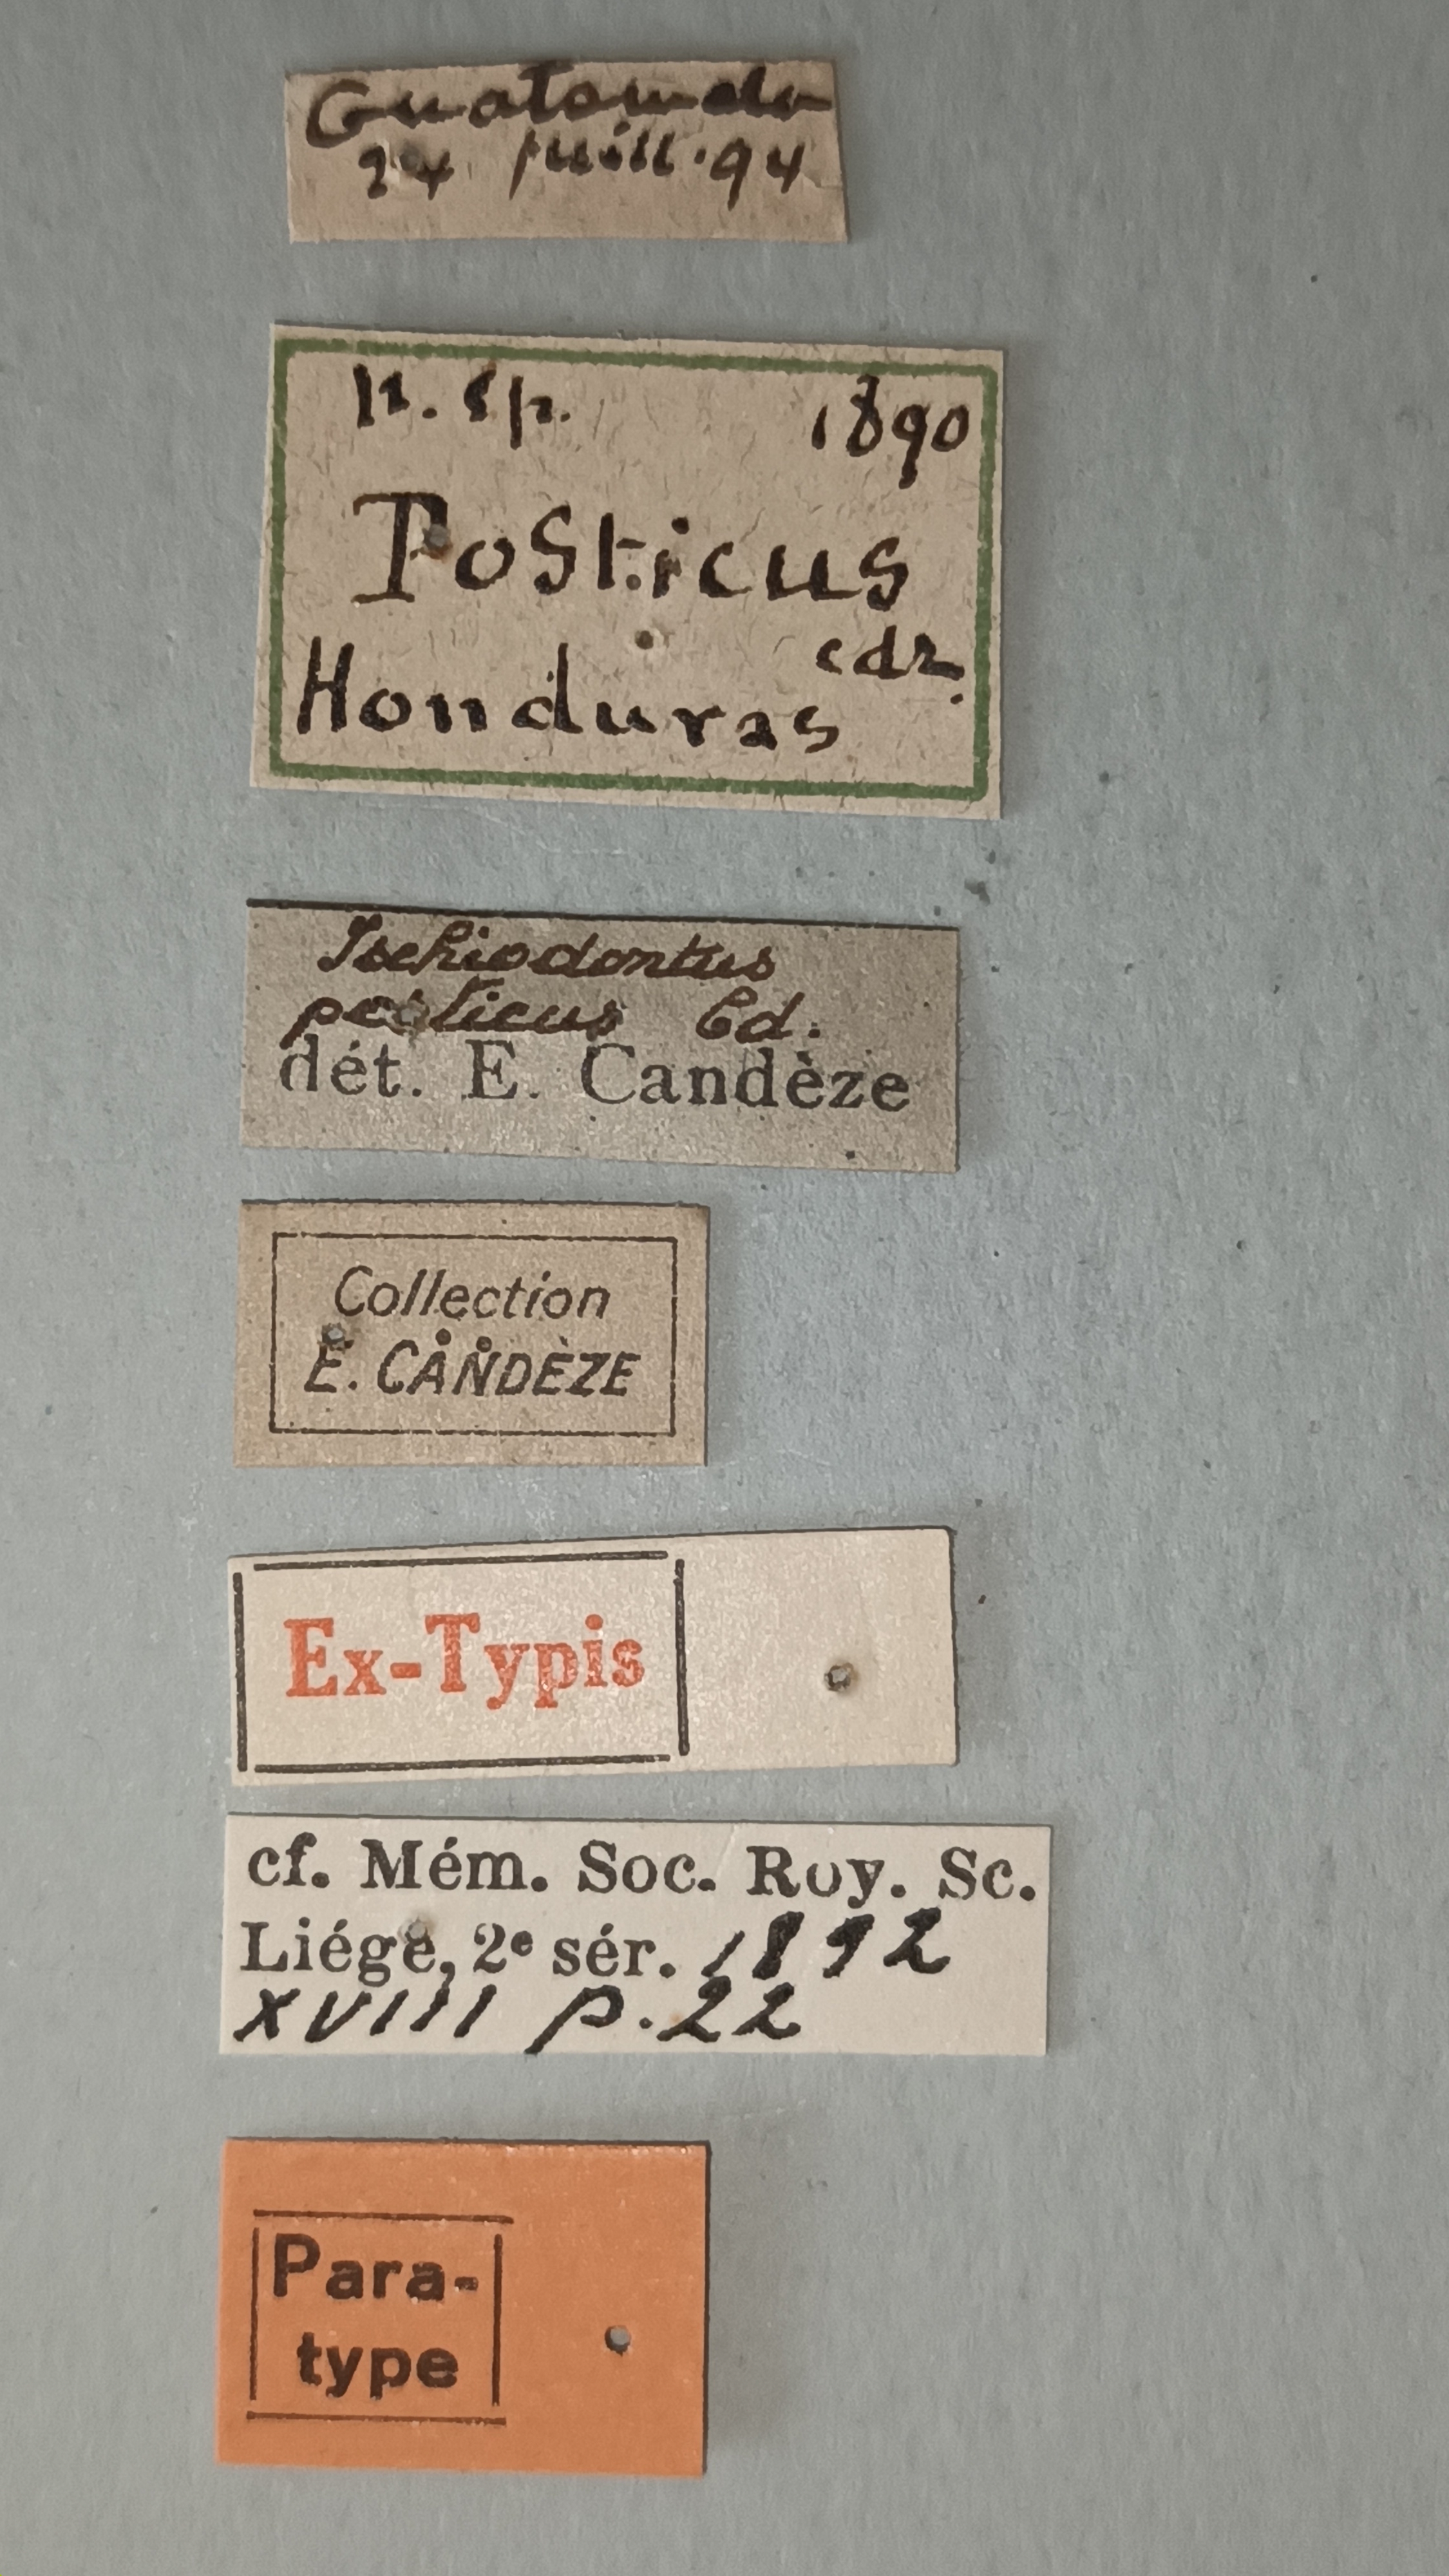 24 juill. 94
n. sp. 1890
Posticus
cdz.
Honduras
Ischiodontus
posticus Cd.
dét. E. Candèze
Collection
E. CANDÈZE
Ex-Typis
cf. Mém. Soc. Roy. Sc.
Liége, 2e sér. 1892
XVIII p. 22
Para-
type